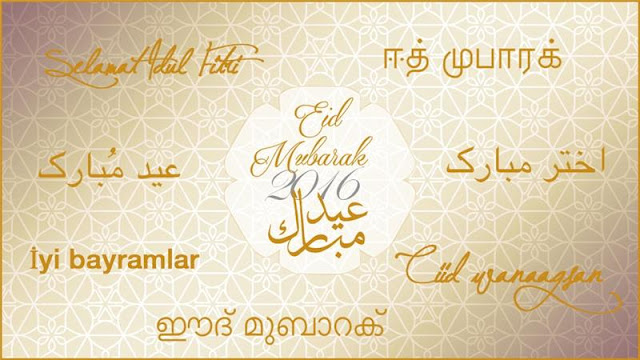 Selamat Idul Fitri
ஈத் முபாரக்
Eid
Mubarak
2016
عيد
مبارك
عید مُبارک
اختر مبارک
İyi bayramlar
Ciid wanaagsan
ഈദ് മുബാറക്